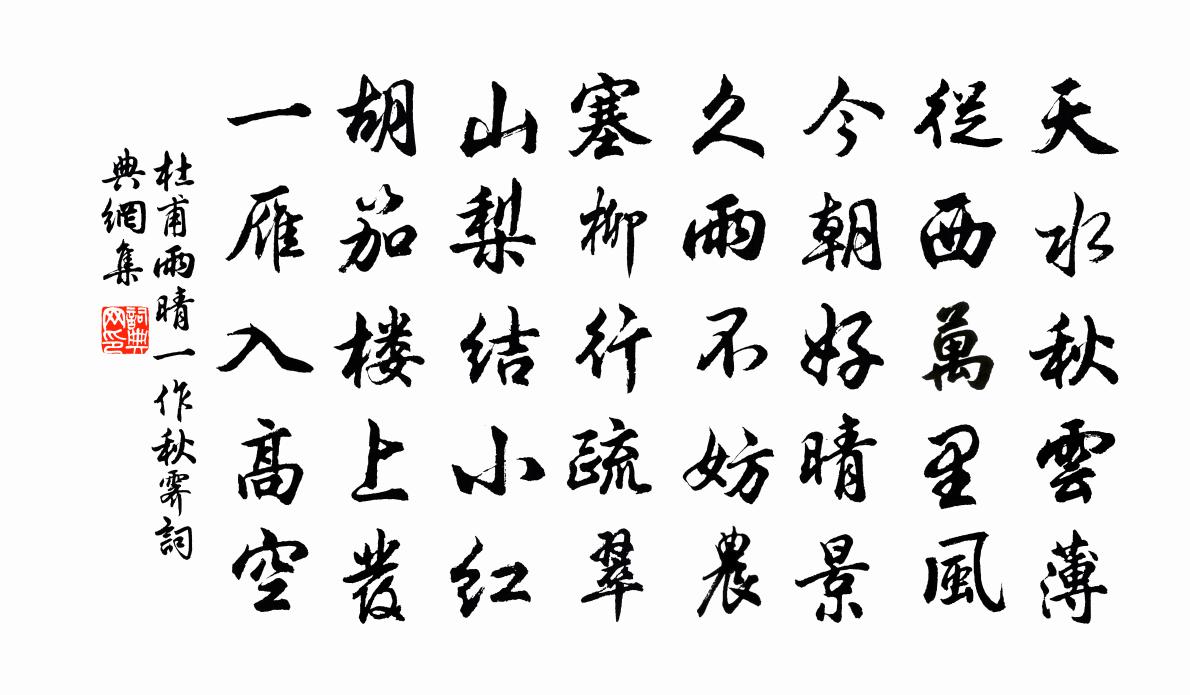 天水秋雲薄
從西萬里風
今朝好晴景
久雨不妨農
塞柳行疏翠
山梨结小红
胡笳楼上發
一雁入高空
杜甫雨晴一作秋霽詞
典網集
詞典
网印